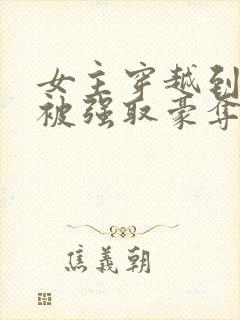 女主穿越到
被强取豪夺
焦義朝